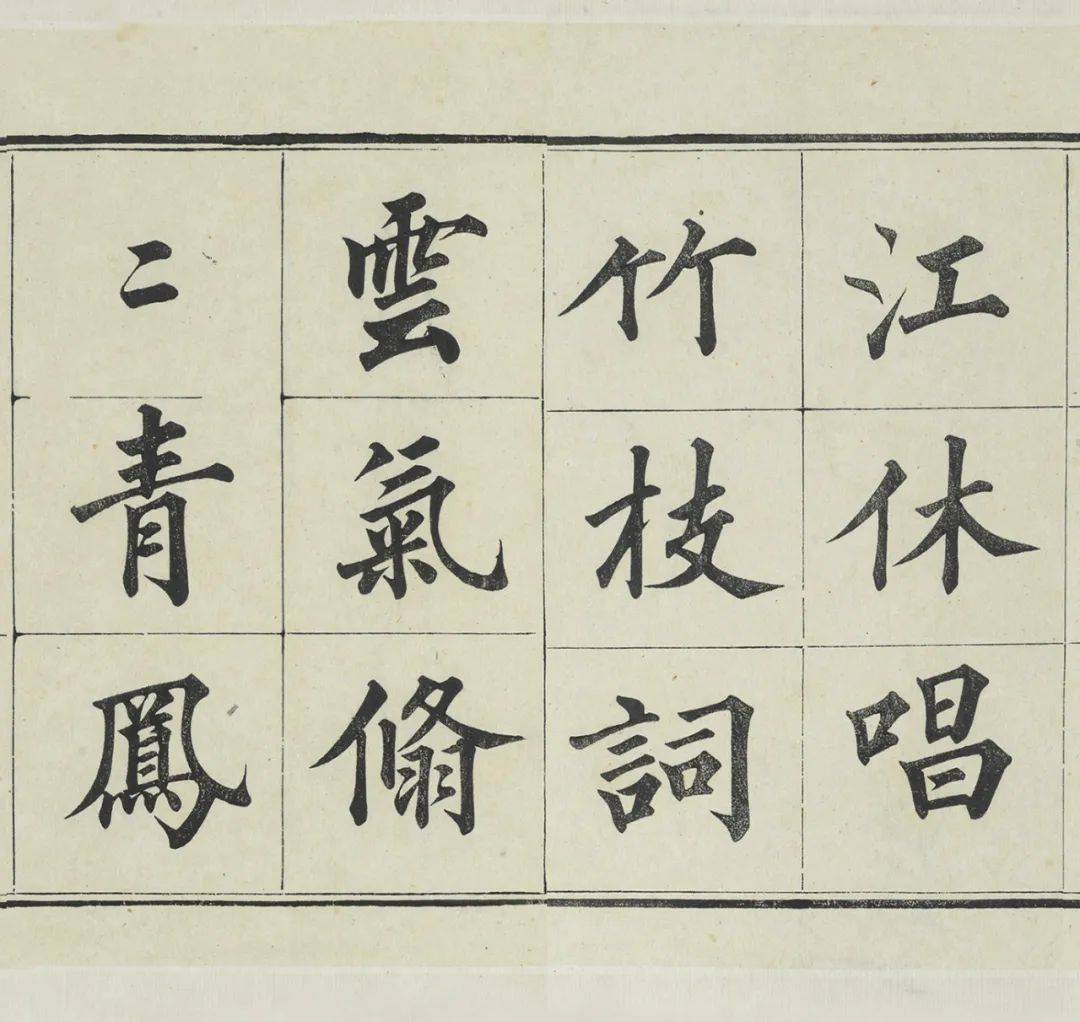 江休唱
竹枝詞
雲氣翛
〻青鳳